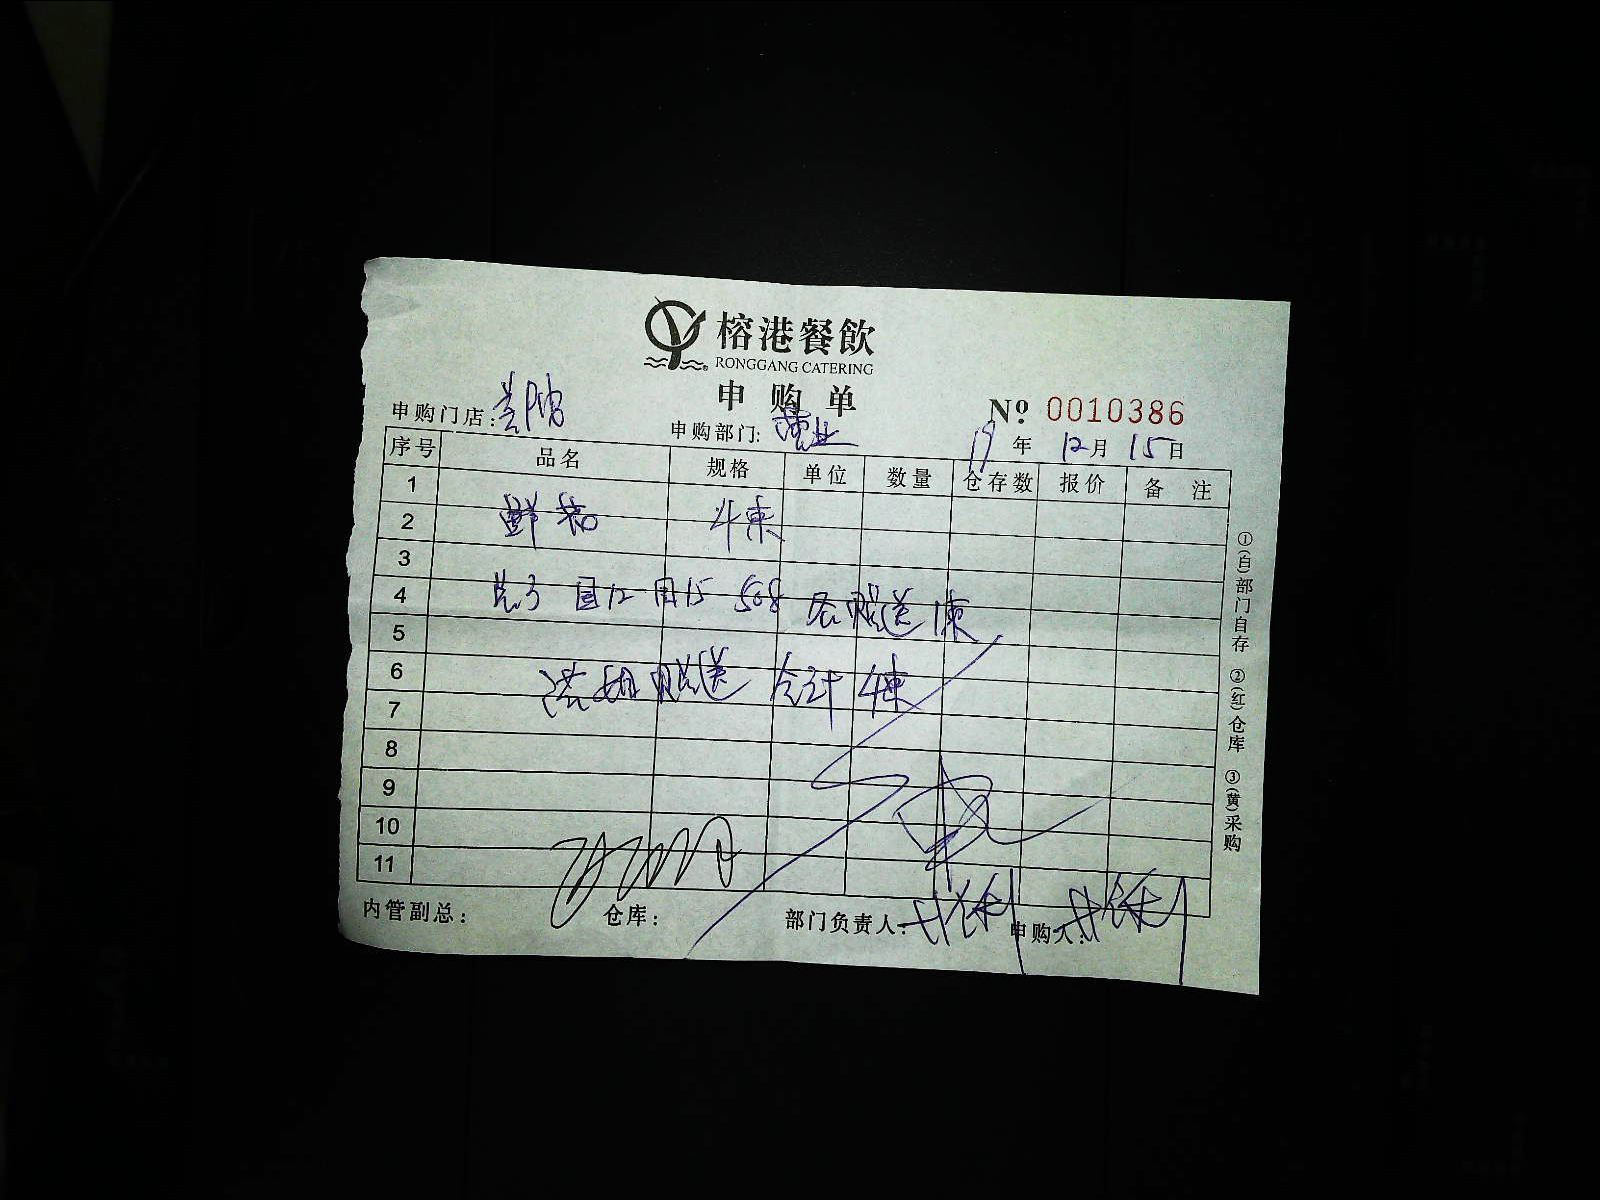 榕港餐飲
RONGGANG CATERING
申购单
№ 0010386
申购门店: 申购部门: 营业 19年12月15日
序号 品名 规格 单位 数量 仓存数 报价 备注
1
2 鲜花 4束
3
4 国12 国15 508 各赠送1束
5
6 赠送 合计 4束
7
8
9
10
11
内管副总: 仓库: 部门负责人: 申购人:
①(白)部门自存 ②(红)仓库 ③(黄)采购